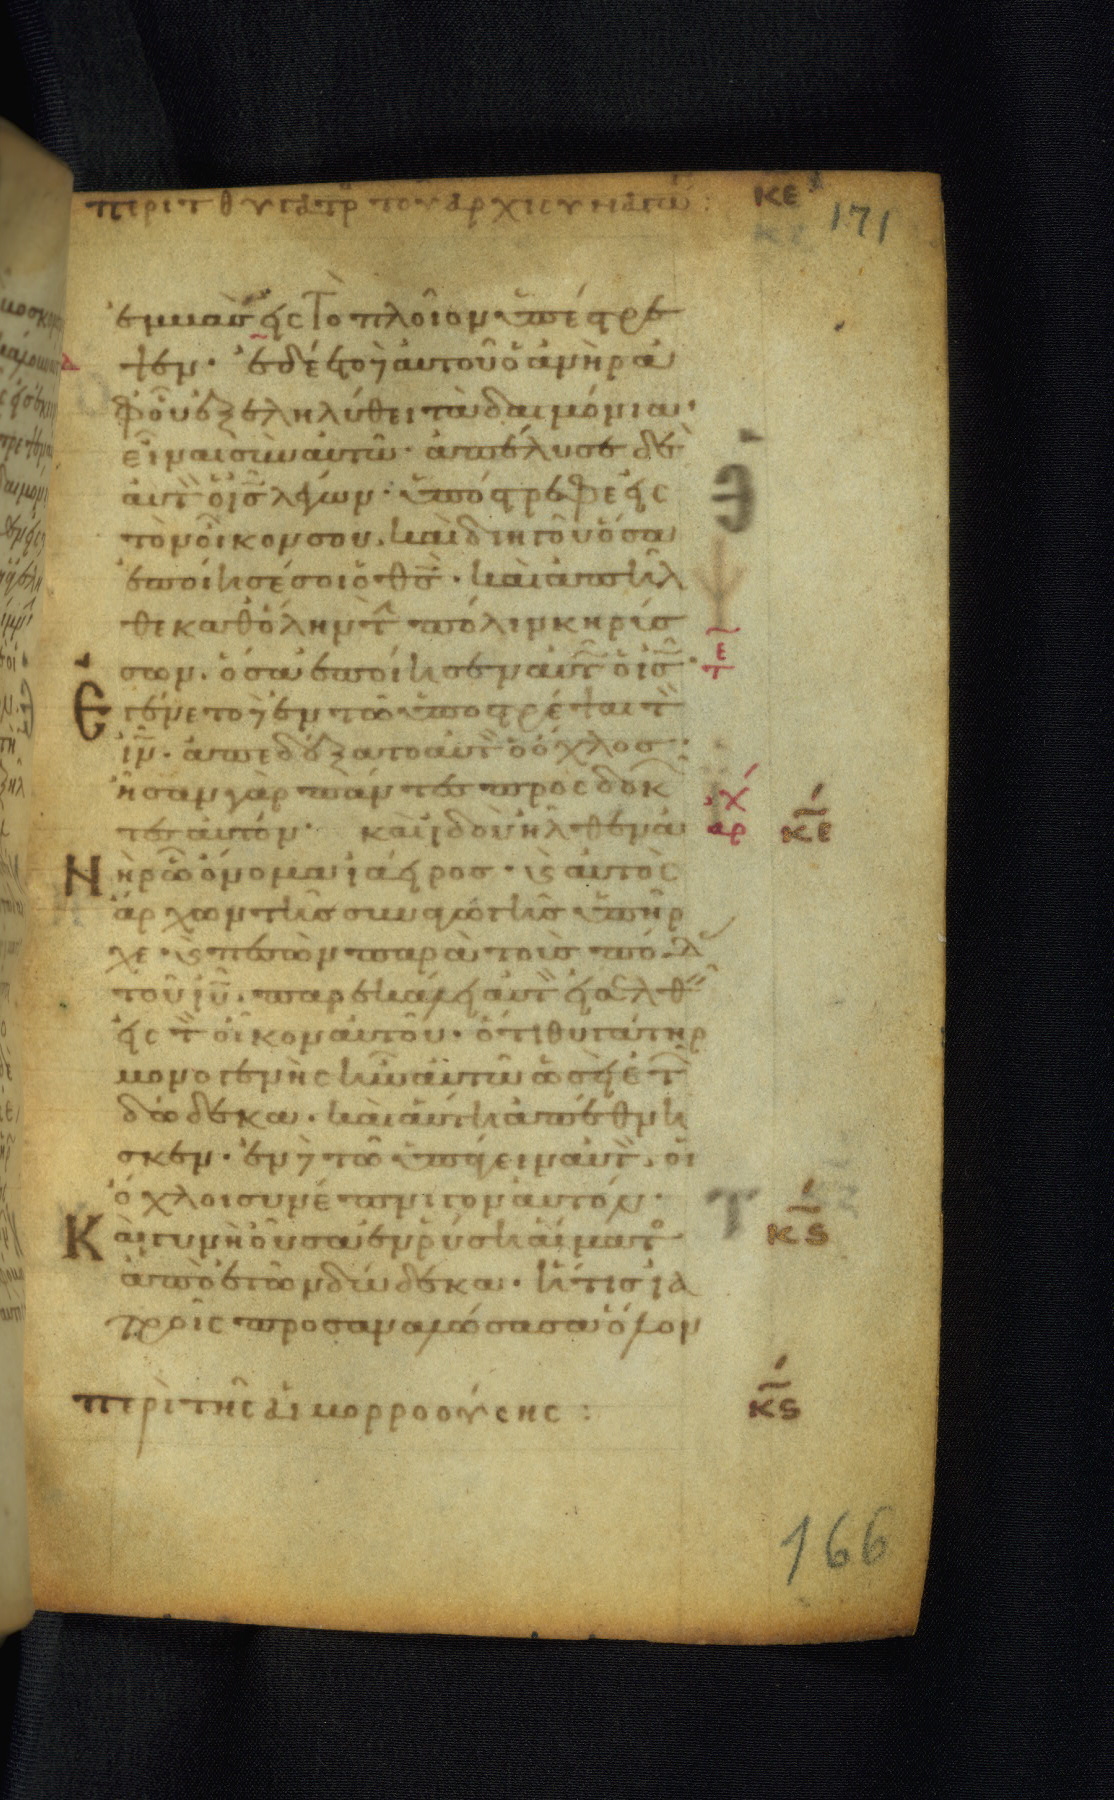 περὶ τ θυγατρ τοῦ ἀρχισυναγώ : κε 171
ἐμβὰς εἰς τὸ πλοῖον ὑπέστρε
ψεν · ἐδέετο δὲ αὐτοῦ ὁ ἀνὴρ ἀ
φ οὗ ἐξεληλύθει τὰ δαιμόνια ·
εἶναι σὺν αὐτῶ · ἀπέλυσε δὲ
αὐτ ὁ ις λέγων · ὑπόστρεφε εἰς
τὸν οἶκον σου · καὶ διηγοῦ ὅσα
ἐποίησέ σοι ὁ θς · καὶ ἀπῆλ
θε καθ ὅλην τ πόλιν κηρύσ
σων · ὅσα ἐποίησεν αὐτ ὁ ις · τε
Ἐγένετο δὲ ἐν τῶ ὑποστρέψαι τ
ιν · ἀπεδέξατο αὐτ ὁ ὄχλος ·
ἦσαν γὰρ πάντες προσδοκ
τες αὐτόν · καὶ ἰδοὺ ἦλθεν ἀ αρχ κε
Νὴρ ὧ ὄνομα ἰάειρος · κ αὐτὸς
ἄρχων τῆς συναγωγῆς ὑπῆρ
χε · κ πεσὼν παρὰ τοὺς πόδ
τοῦ ιυ · παρεκάλει αὐτ εἰσελθ
εἰς τ οἶκον αὐτοῦ · ὅτι θυγάτηρ
μονογενὴς ἦν αὐτῶ ὡς ἐτ
δώδεκα · καὶ αὕτη ἀπέθνη
σκεν · ἐν δὲ τῶ ὑπάγειν αὐτ · οἱ
ὄχλοι συνέπνιγον αὐτόν ·
Καὶ γυνὴ οὖσα ἐν ῥύσει αἵματ κς
ἀπὸ ἐτῶν δώδεκα · ἥτις ἰα
τροῖς προσαναλώσασα ὅλον
περὶ τῆς αἱμορροούσης : κς
166